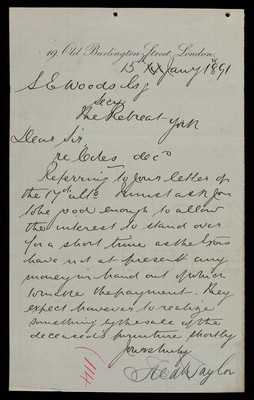 19, Old Burlington Street, London.
15th Jany 1891
S E Woods Esq
Secy
The Retreat York
Dear Sir
re Coles decd
Referring to your letter of
the 17th ulto I must ask you
to be good enough to allow
the interest to stand over
for a short time as the Exors
have not at present any
money in hand out of which
to make the payment. They
expect however to realize
something by the sale of the
deceased's furniture shortly
Yours truly
Taylor